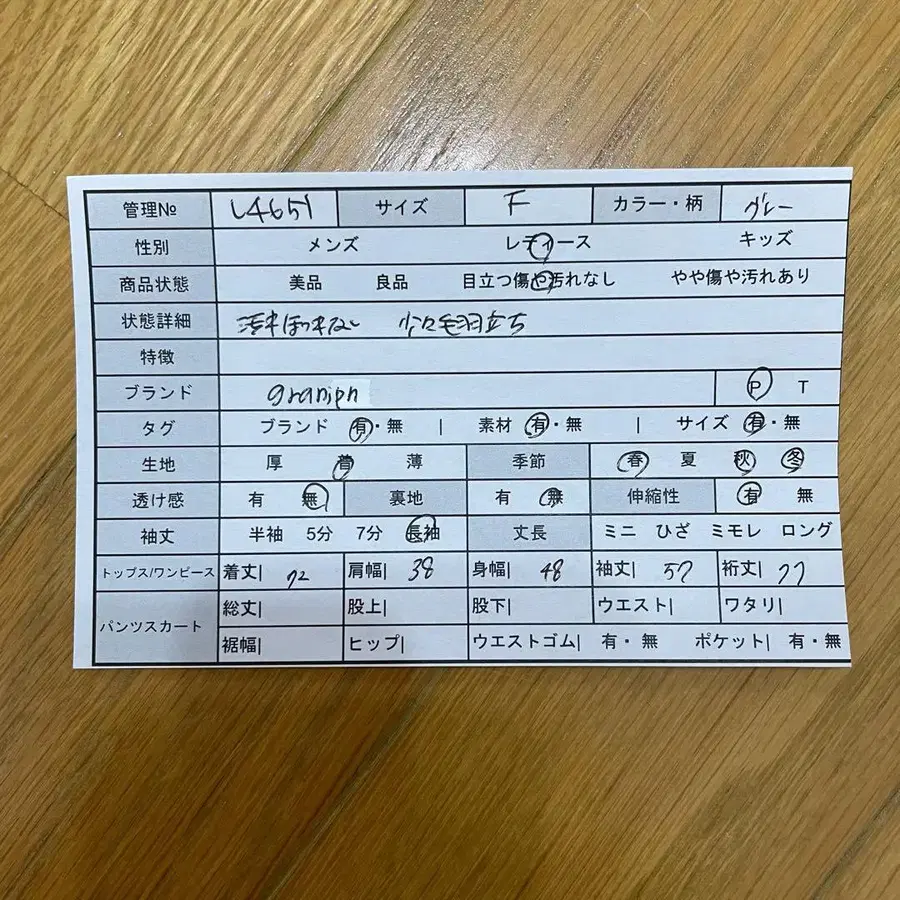 管理№ L4651 サイズ F カラー・柄 グレー
性別 メンズ レディース キッズ
商品状態 美品 良品 目立つ傷や汚れなし やや傷や汚れあり
状態詳細 汚れほつれない 少々毛羽立ち
特徴
ブランド graniph P T
タグ ブランド 有・無 | 素材 有・無 | サイズ 有・無
生地 厚 普 薄 季節 春 夏 秋 冬
透け感 有 無 裏地 有 無 伸縮性 有 無
袖丈 半袖 5分 7分 長袖 丈長 ミニ ひざ ミモレ ロング
トップス/ワンピース 着丈| 72 肩幅| 38 身幅| 48 袖丈| 57 裄丈| 77
パンツスカート 総丈| 股上| 股下| ウエスト| ワタリ|
裾幅| ヒップ| ウエストゴム| 有・無 ポケット| 有・無